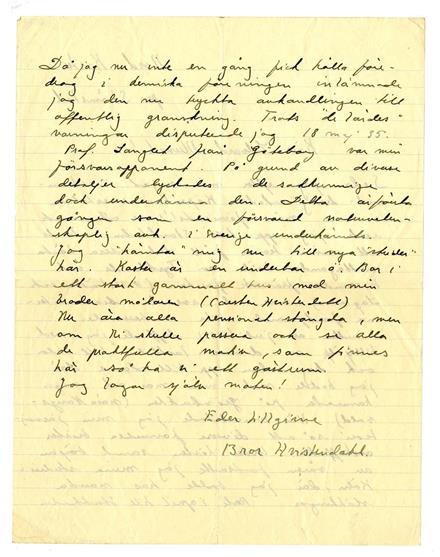 Då jag nu inte en gång fick hålla före-
drag i kemiska föreningen inlämnade
jag den nu tryckta avhandlingen till
offentlig granskning. Trots "de lärdes"
varningar disputerade jag 18 maj 35.
Prof. Langlet från Göteborg var min
försvarsopponent. På grund av diverse
detaljer lyckades de sadkunnige
döck underkänna den. Detta är första
gången som en försvarad naturveten-
skaplig avh. i Sverige underkänts.
Jag "hämtar" mig nu till nya "studier"
här. Karlsö är en underbar ö. Bor i
ett stort gammalt hus med min
broder målaren (Custer Kristerdahl)
Nu äro alla pensionat stängda, men
om Ni skulle passera och se alla
de praktfulla som finnes
här så ha vi ett gästrum.
Jag lagar själv maten!
Eder tillgivne
Bror Kristerdahl.